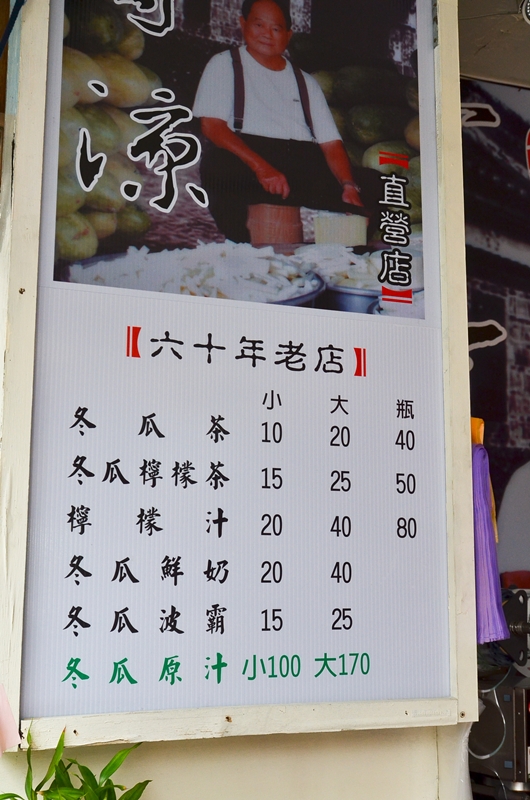 涼
直營店
【六十年老店】
小 大 瓶
冬瓜茶 10 20 40
冬瓜檸檬茶 15 25 50
檸檬汁 20 40 80
冬瓜鮮奶 20 40
冬瓜波霸 15 25
冬瓜原汁 小100 大170